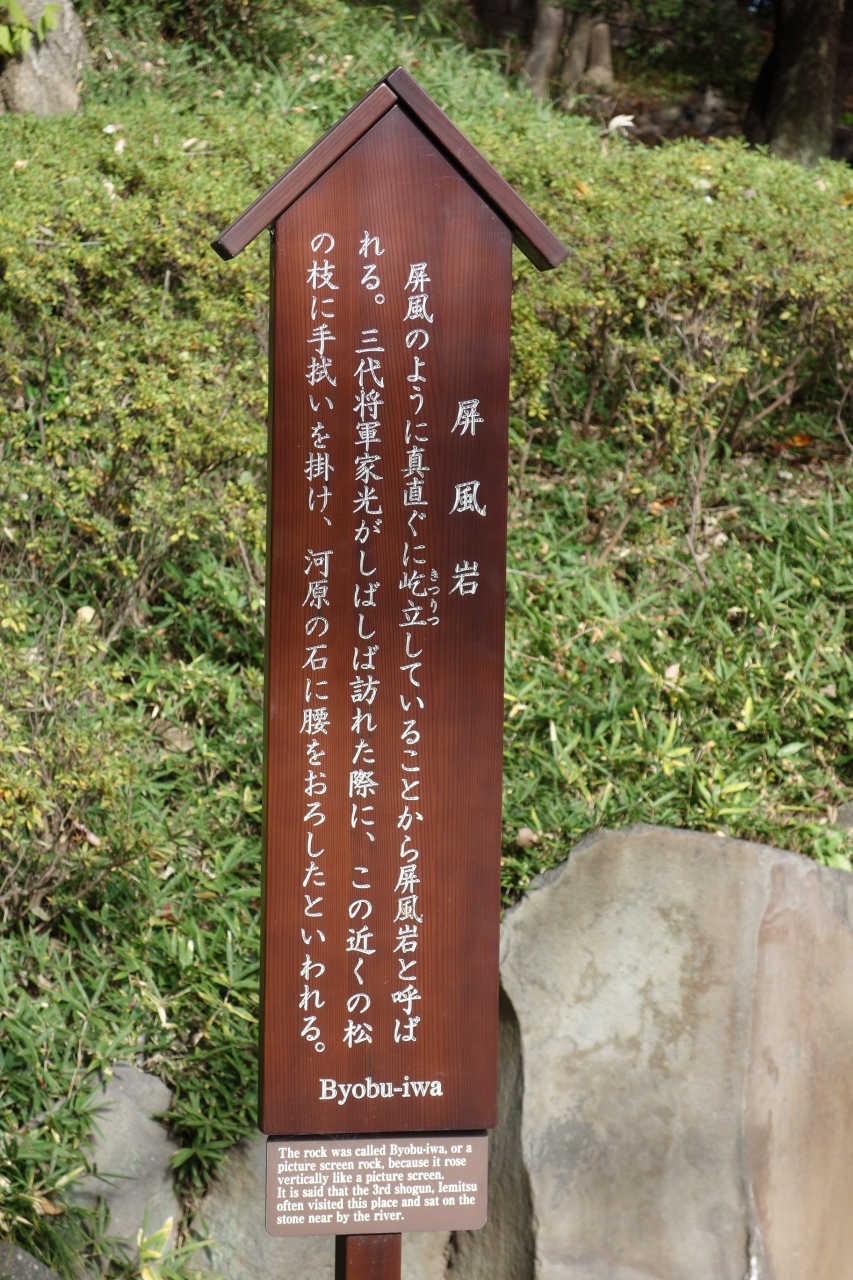 屏風岩
屏風のように真直ぐに屹立していることから屏風岩と呼ば
きつりつ
れる。三代将軍家光がしばしば訪れた際に、この近くの松
の枝に手拭いを掛け、河原の石に腰をおろしたといわれる。
Byobu-iwa
The rock was called Byobu-iwa, or a
picture screen rock, because it rose
vertically like a picture screen.
It is said that the 3rd shogun, Iemitsu
often visited this place and sat on the
stone near by the river.